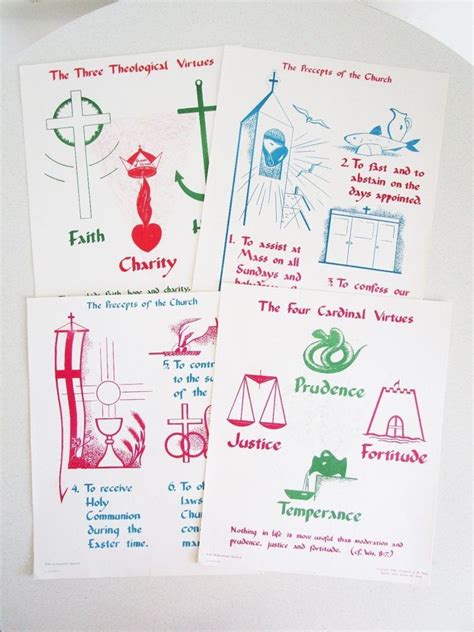 The Three Theological Virtues
Faith
Charity
faith, hope and charity,
The Precepts of the Church
2. To fast and to
abstain on the
days appointed.
1. To assist at
Mass on all
Sundays and
3. To confess our
The Precepts of the Church
5. To
to the
of the
4. To receive
Holy
Communion
during the
Easter time.
6. To
laws
The Four Cardinal Virtues
Prudence
Justice
Fortitude
Temperance
Nothing in life is more useful than moderation and
prudence, justice and fortitude. (cf. Wis. 8:7.)